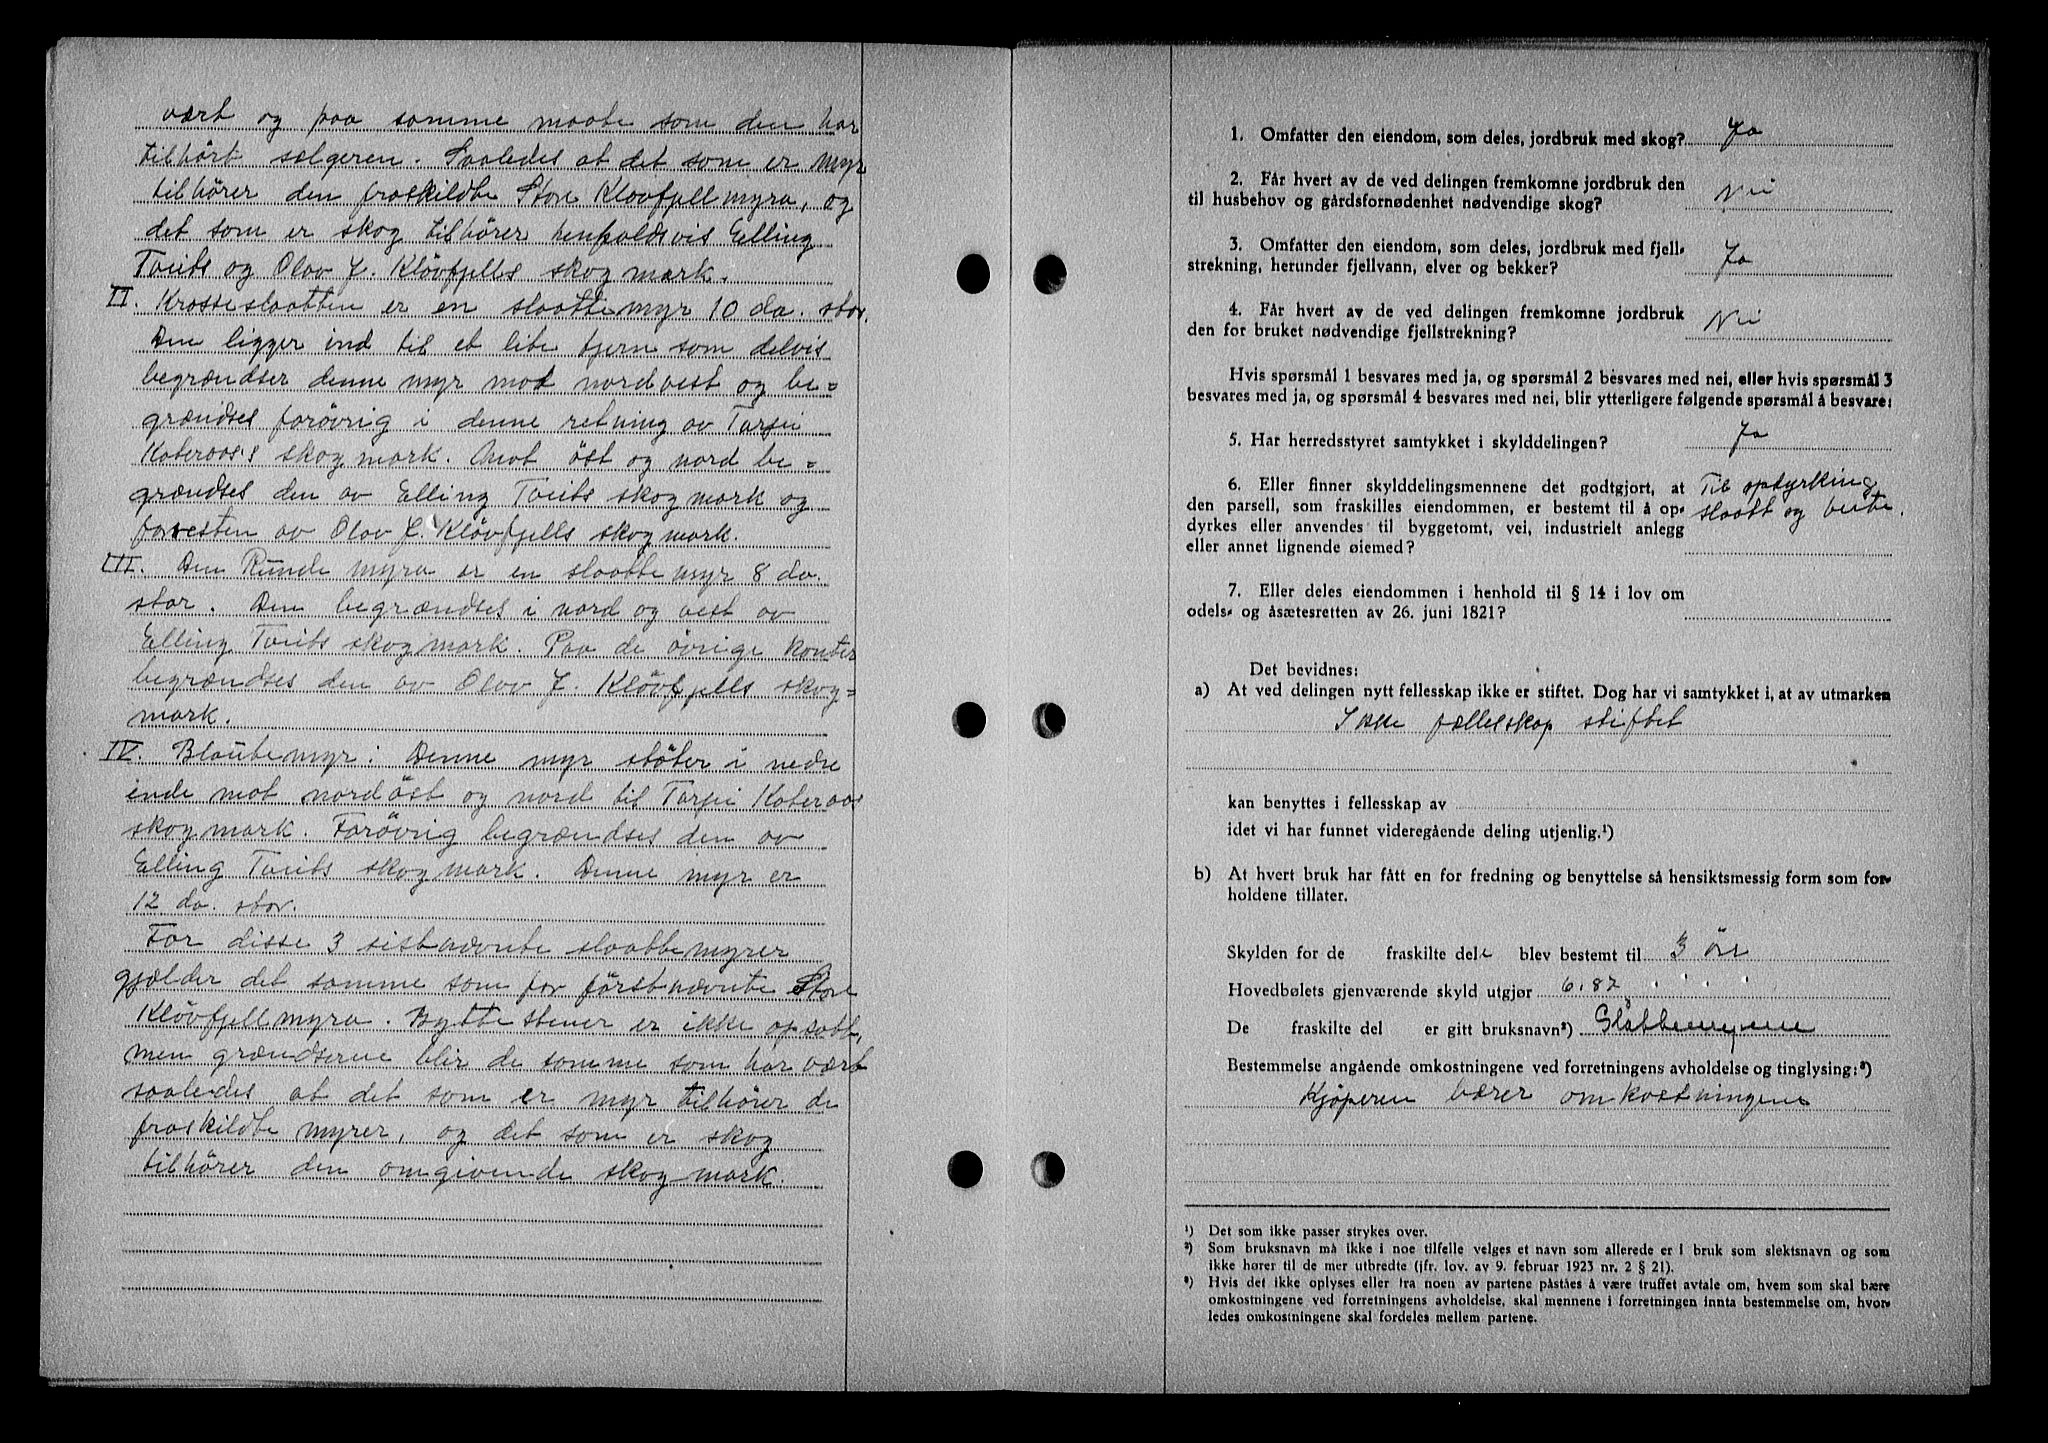 vært og paa samme maate som den har
tilhørt sælgeren. Saaledes at det som er myr
tilhører den fraskildte Store Kløvfjellmyra, og
det som er skog tilhører henholdsvis Elling
Tveits og Olav J. Kløvfjells skogmark.
II. Krosseslaatten er en slaattemyr 10 da. stor.
Den ligger ind til et lite tjern som delvis
begrændser denne myr mot nordvest og be-
grændses forøvrig i denne retning av Tarjei
Kateraas's skogmark. Mot øst og nord be-
grændses den av Elling Tveits skogmark og
forresten av Olav J. Kløvfjells skogmark.
III. Den Runde myra er en slaattemyr 8 da.
stor. Den begrændses i nord og vest av
Elling Tveits skogmark. Paa de øvrige kanter
begrændses den av Olav J. Kløvfjells skog-
mark.
IV. Blautemyr: Denne myr støter i nedre
ende mot nordøst og nord til Tarjei Kateraas
skogmark. Forøvrig begrændses den av
Elling Tveits skogmark. Denne myr er
12 da. stor.
For disse 3 sistnævnte slaattemyrer
gjælder det samme som for førstnævnte Store
Kløvfjellmyra. Byttestener er ikke opsatt,
men grændserne blir de somme som har vært
saaledes at det som er myr tilhører de
fraskildte myrer, og det som er skog
tilhører den omgivende skogmark.
1. Omfatter den eiendom, som deles, jordbruk med skog? Ja
2. Får hvert av de ved delingen fremkomne jordbruk den
til husbehov og gårdsfornødenhet nødvendige skog? Nei
3. Omfatter den eiendom, som deles, jordbruk med fjell-
strekning, herunder fjellvann, elver og bekker? Ja
4. Får hvert av de ved delingen fremkomne jordbruk
den for bruket nødvendige fjellstrekning? Nei
Hvis spørsmål 1 besvares med ja, og spørsmål 2 besvares med nei, eller hvis spørsmål 3
besvares med ja, og spørsmål 4 besvares med nei, blir ytterligere følgende spørsmål å besvare:
5. Har herredsstyret samtykket i skylddelingen? Ja
6. Eller finner skylddelingsmennene det godtgjort, at Til opdyrking
den parsell, som fraskilles eiendommen, er bestemt til å op- slaatt og beite.
dyrkes eller anvendes til byggetomt, vei, industrielt anlegg
eller annet lignende øiemed?
7. Eller deles eiendommen i henhold til § 14 i lov om
odels- og åsætesretten av 26. juni 1821?
Det bevidnes:
a) At ved delingen nytt fellesskap ikke er stiftet. Dog har vi samtykket i, at av utmarken
Ikke fælleskap stiftet
kan benyttes i fellesskap av
idet vi har funnet videregående deling utjenlig.¹)
b) At hvert bruk har fått en for fredning og benyttelse så hensiktsmessig form som for-
holdene tillater.
Skylden for de fraskilte dele blev bestemt til 3 øre
Hovedbølets gjenværende skyld utgjør 6.87
De fraskilte del er gitt bruksnavn²) Slåttemyrene
Bestemmelse angående omkostningene ved forretningens avholdelse og tinglysing:³)
Kjøperen bærer omkostningene
¹) Det som ikke passer strykes over.
²) Som bruksnavn må ikke i noe tilfelle velges et navn som allerede er i bruk som slektsnavn og som
ikke hører til de mer utbredte (jfr. lov. av 9. februar 1923 nr. 2 § 21).
³) Hvis det ikke oplyses eller fra noen av partene påståes å være truffet avtale om, hvem som skal bære
omkostningene ved forretningens avholdelse, skal mennene i forretningen innta bestemmelse om, hvor-
ledes omkostningene skal fordeles mellem partene.